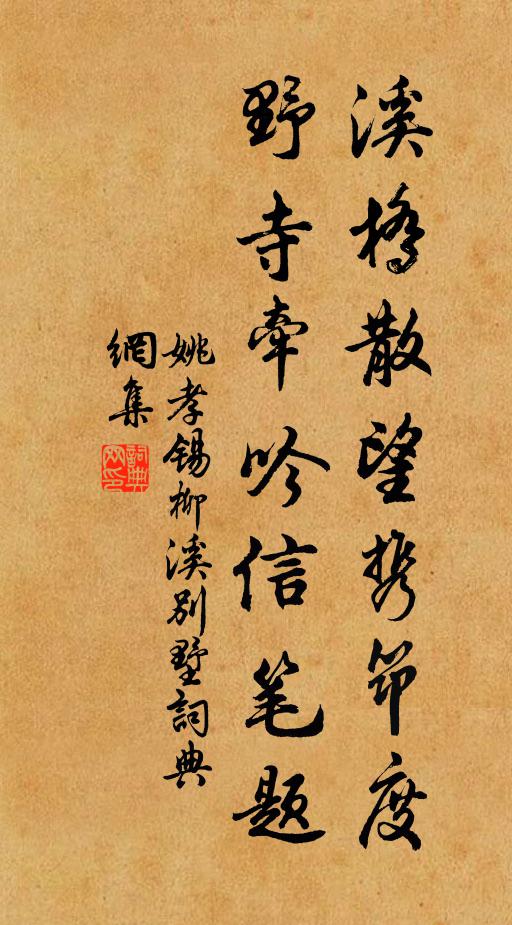 溪橋散望携筇度
野寺牽吟信笔题
姚孝锡柳溪别墅詞典
網集
詞典
网印